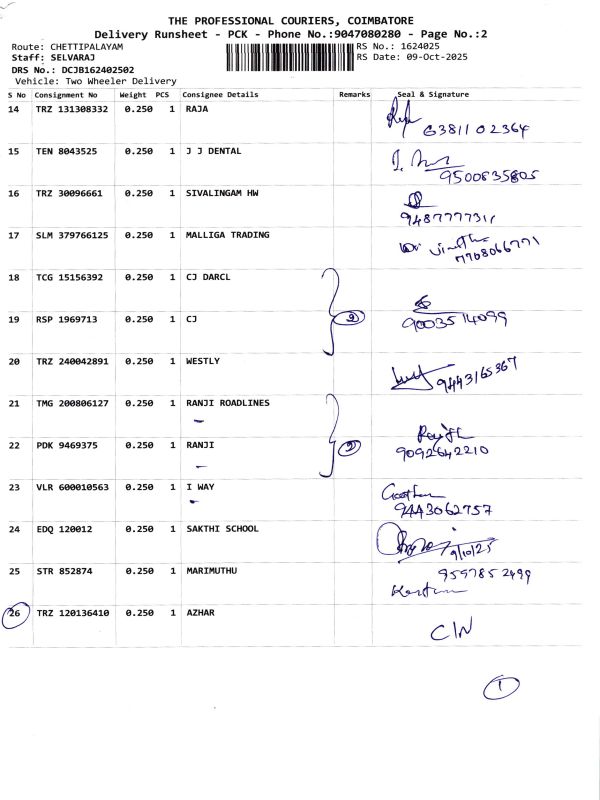 THE PROFESSIONAL COURIERS, COIMBATORE
Delivery Runsheet - PCK - Phone No.:9047080280 - Page No.:2
Route: CHETTIPALAYAM RS No.: 1624025
Staff: SELVARAJ RS Date: 09-Oct-2025
DRS No.: DCJB162402502
Vehicle: Two Wheeler Delivery
S No Consignment No Weight PCS Consignee Details Remarks Seal & Signature
14 TRZ 131308332 0.250 1 RAJA
6381102364
15 TEN 8043525 0.250 1 J J DENTAL
9500835805
16 TRZ 30096661 0.250 1 SIVALINGAM HW
9487777311
17 SLM 379766125 0.250 1 MALLIGA TRADING
7708066771
18 TCG 15156392 0.250 1 CJ DARCL
19 RSP 1969713 0.250 1 CJ 2
9003514099
20 TRZ 240042891 0.250 1 WESTLY
9443165367
21 TMG 200806127 0.250 1 RANJI ROADLINES
22 PDK 9469375 0.250 1 RANJI 2
9092642210
23 VLR 600010563 0.250 1 I WAY
9443062757
24 EDQ 120012 0.250 1 SAKTHI SCHOOL
9/10/25
25 STR 852874 0.250 1 MARIMUTHU 9597852499
26 TRZ 120136410 0.250 1 AZHAR
C/N
1